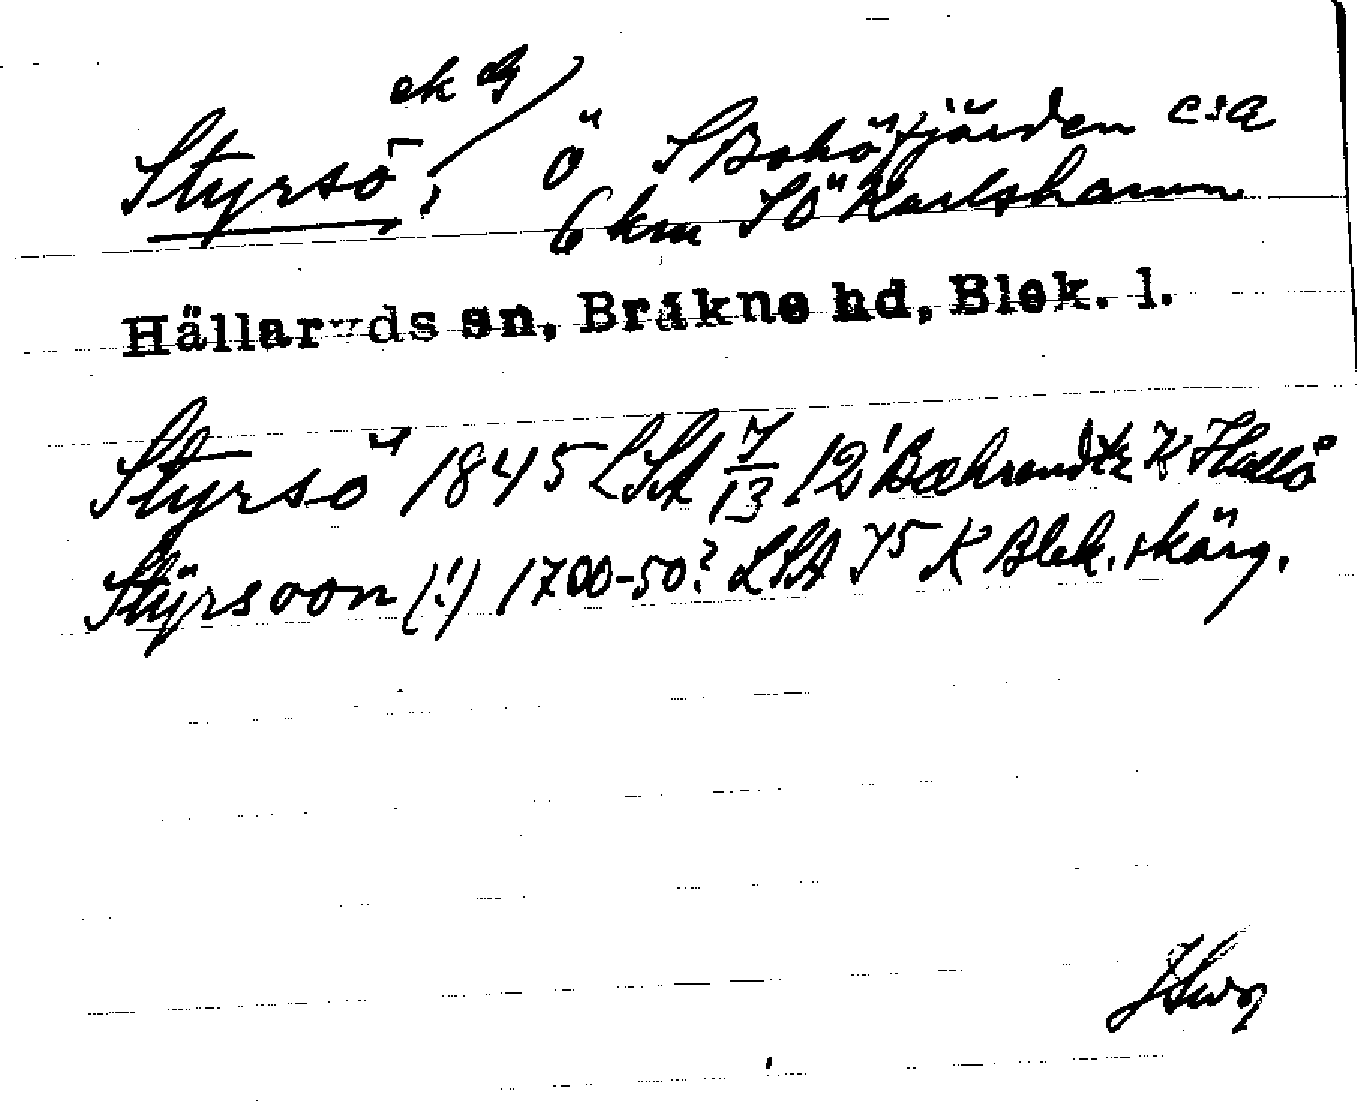 ek
Styrsö, ö S Bokö fjärden c:a
6 km SO Karlshamn
Hällaryds sn, Bräkne hd, Blek. l.
Styrsö 1845 LSA 7/13 12 Bæhrendtz K Hallö
Stÿrsoon (!) 1700-50? LSA Y5 K Blek. skärg.